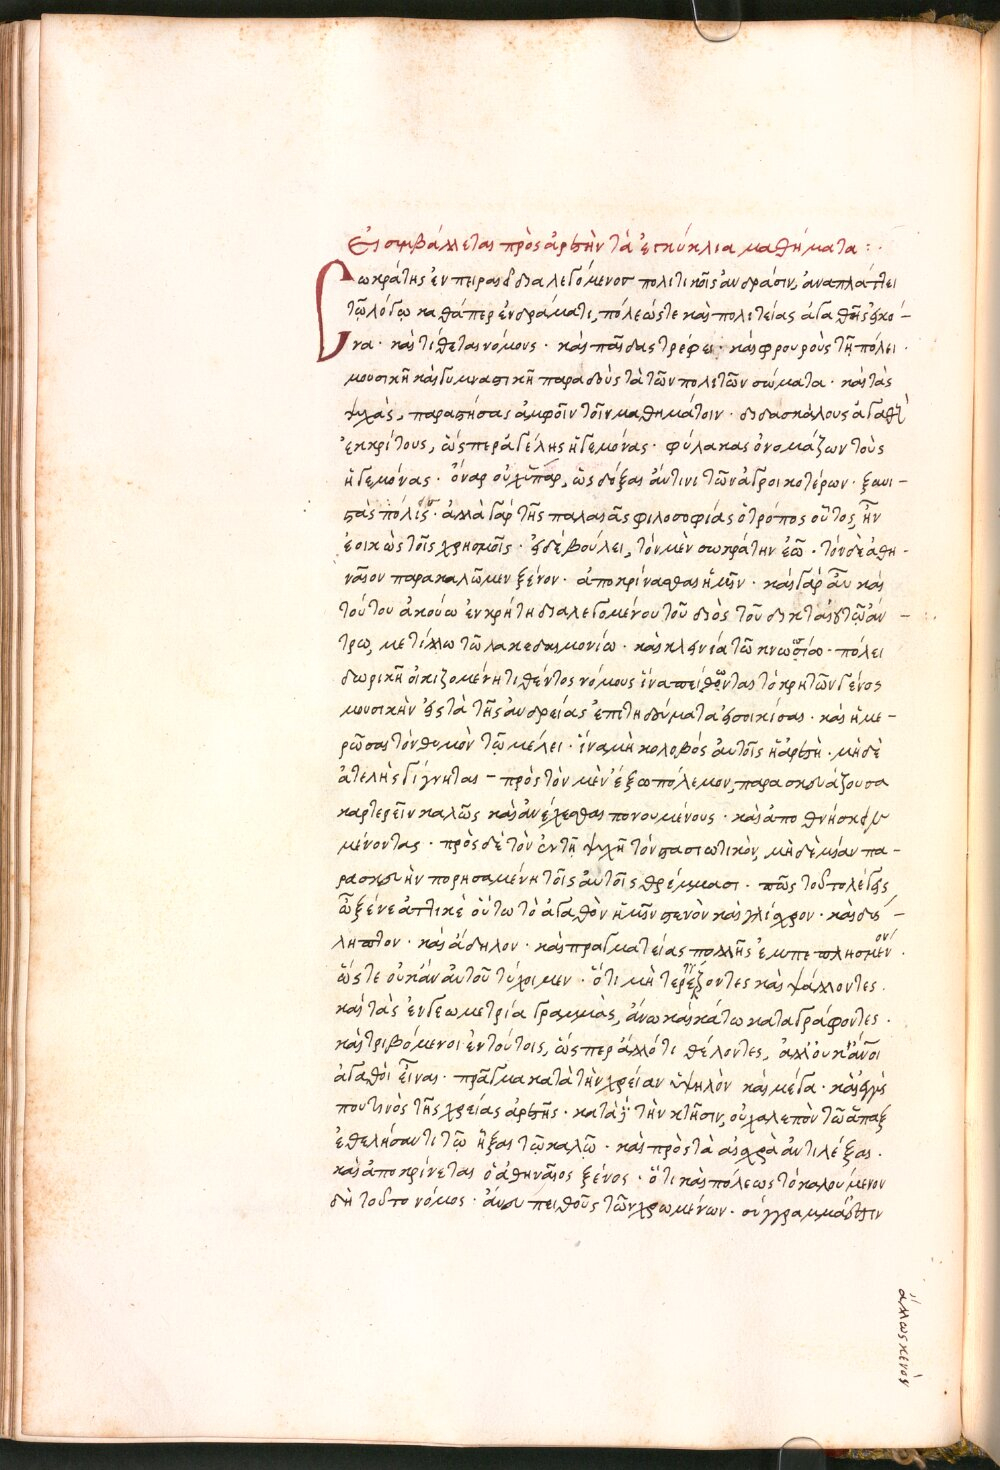 Εἰ συμβάλλεται πρὸς ἀρετὴν τὰ ἐγκύκλια μαθήματα :·
Σωκράτης ἐν πειραιεῖ διαλεγόμενος πολιτικοῖς ἀνδράσιν, ἀναπλάττει
τῷ λόγῳ καθάπερ ἐν δράματι, πόλεώς τε καὶ πολιτείας ἀγαθῆς εἰκό-
να · καὶ τίθεται νόμους · καὶ παῖδας τρέφει · καὶ φρουροὺς τῇ πόλει ·
μουσικῇ καὶ γυμναστικῇ παραδοὺς τὰ τῶν πολιτῶν σώματα · καὶ τὰς
ψυχὰς, παραστήσας ἀμφοῖν τοῖν μαθημάτοιν · διδασκάλους ἀγαθοὺς
ἐκκρίτους, ὥσπερ ἀγέλης ἡγεμόνας · φύλακας ὀνομάζων τοὺς
ἡγεμόνας · ὄναρ οὐχ ὕπαρ, ὡς δόξαι ἄν τινι τῶν ἀγροικοτέρων · ξυνι-
στὰς πόλεις · ἀλλὰ γὰρ τῆς παλαιᾶς φιλοσοφίας ὁ τρόπος οὗτος ἦν
ἐοικὼς τοῖς χρησμοῖς · εἰ δὲ βούλει, τὸν μὲν σωκράτην ἐῶ · τὸν δὲ ἀθη-
ναῖον παρακαλῶμεν ξένον · ἀποκρίνασθαι ἡμῖν · καὶ γὰρ αὖ καὶ
τούτου ἀκούω ἐν κρήτῃ διαλεγομένου τοῦ διὸς τοῦ δικταίου τῷ ἄν-
τρῳ, μετίλλω τῷ λακεδαιμονίῳ · καὶ κλεινίᾳ τῷ κνωσσίῳ · πόλει
δωρικῇ οἰκιζομένῃ τιθέντος νόμους ἵνα πείθοιντας τὸ κρητῶν γένος
μουσικὴν εἰς τὰ τῆς ἀνδρείας ἐπιτηδεύματα εἰσοικίσαι · καὶ ἡμε-
ρῶσαι τὸν θυμὸν τῷ μέλει · ἵνα μὴ κολοβὸς αὐτοῖς ἡ ἀρετὴ · μηδὲ
ἀτελὴς γίγνηται - πρὸς τὸν μὲν ἔξω πόλεμον, παρασκευάζουσα
καρτερεῖν καλῶς καὶ ἀνέχεσθαι πονουμένους · καὶ ἀποθνήσκειν
μένοντας · πρὸς δὲ τὸν ἐν τῇ ψυχῇ τὸν στασιωτικὸν, μηδὲ μίαν πα-
ρασκευὴν πορησαμένη τοῖς αὐτοῖς θρέμμασι · πῶς τοῦτο λέγεις
ὦ ξένε ἀττικὲ οὕτω τὸ ἀγαθὸν ἡμῖν στενὸν καὶ γλίσχρον · καὶ δύσ-
ληπτον · καὶ ἄδηλον · καὶ πραγματείας πολλῆς ἐμπεπλησμένον ·
ὥστε οὐκ ἂν αὐτοῦ τύχοιμεν · ὅτι μὴ τερετίζοντες καὶ ψάλλοντες ·
καὶ τὰς ἐν γεωμετρίᾳ γραμμὰς, ἄνω καὶ κάτω καταγράφοντες ·
καὶ τριβόμενοι ἐν τούτοις, ὥσπερ ἄλλό τι θέλοντες, ἀλλ' οὐκ ἄνοι
ἀγαθοὶ εἶναι · πρᾶγμα κατὰ τὴν χρείαν ὑψηλὸν καὶ μέγα · καὶ ἐγγύς
που τινὸς τῆς χρείας ἀρετῆς · κατὰ δὲ τὴν κτῆσιν, οὐ χαλεπὸν τῷ ἅπαξ
ἐθελήσαντι τῷ ἧξαι τῷ καλῷ · καὶ πρὸς τὰ αἰσχρὰ ἀντιλέξαι ·
καὶ ἀποκρίνεται ὁ ἀθηναῖος ξένος · ὅτι καὶ πόλεως τὸ καλούμενον
δὴ τοῦτο νόμος · ἄνευ πειθοῦς τῶν χρωμένων · συγγραμμά ἐστιν
ἄλλως κενὸν